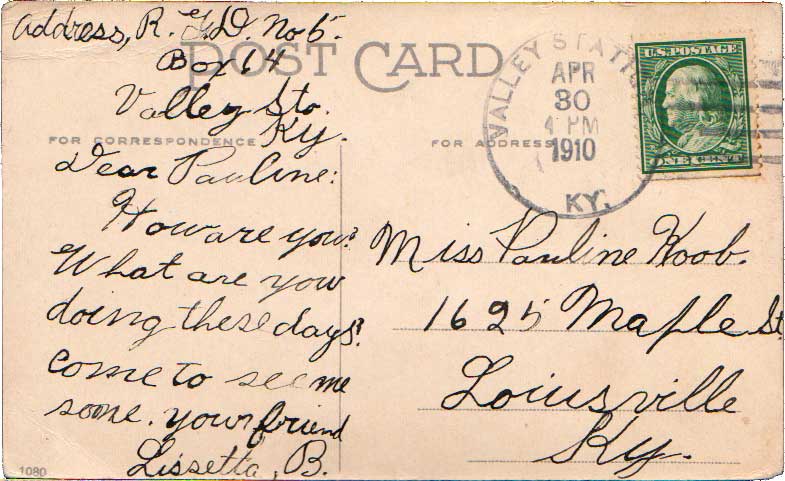 Address, R. F. D. No 5.
Box 14
POST CARD
Valley Sta.
Ky.
FOR CORRESPONDENCE
Dear Pauline:
How are you?
What are you
doing these days?
come to see me
some. your friend
Lissetta, B.
1080
FOR ADDRESS
VALLEY STATION
APR
30
4 PM
1910
KY.
U.S. POSTAGE
ONE CENT
Miss Pauline Koob.
1625 Maple St.
Loiusville
Ky.